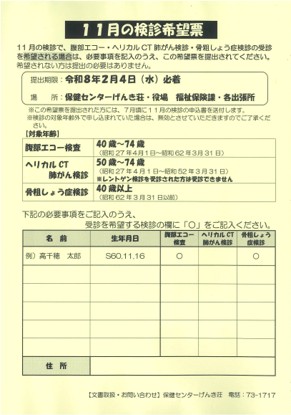 １１月の検診希望票
１１月の検診で、腹部エコー・ヘリカルCT肺がん検診・骨粗しょう症検診の受診
を希望される場合は、必要事項をご記入のうえ、この希望票を提出されてください。
希望されない方は提出の必要はありません。
提出期限：令和８年２月４日（水）必着
場　所：保健センターげんき荘・役場　福祉保険課・各出張所
※この希望票を提出された方には、７月頃に１１月の検診の申込書を送付します。
※検診の対象年齢外で申し込まれていた場合は、無効とさせていただきますのでご了承くだ
さい。
【対象年齢】
腹部エコー検査　４０歳～７４歳
（昭和２７年４月１日～昭和６２年３月３１日）
ヘリカルCT
肺がん検診　５０歳～７４歳
（昭和２７年４月１日～昭和５２年３月３１日）
※レントゲン検診を受診された方は受診できません
骨粗しょう症検診　４０歳以上
（昭和６２年３月３１日以前）
下記の必要事項をご記入のうえ、
受診を希望する検診の欄に「○」をご記入ください。
名　前　生年月日　腹部エコー検査　ヘリカルCT肺がん検診　骨粗しょう症検診
例）高千穂　太郎　S60.11.16　○　○
住　所
【文書取扱・お問い合わせ】保健センターげんき荘　電話：73-1717